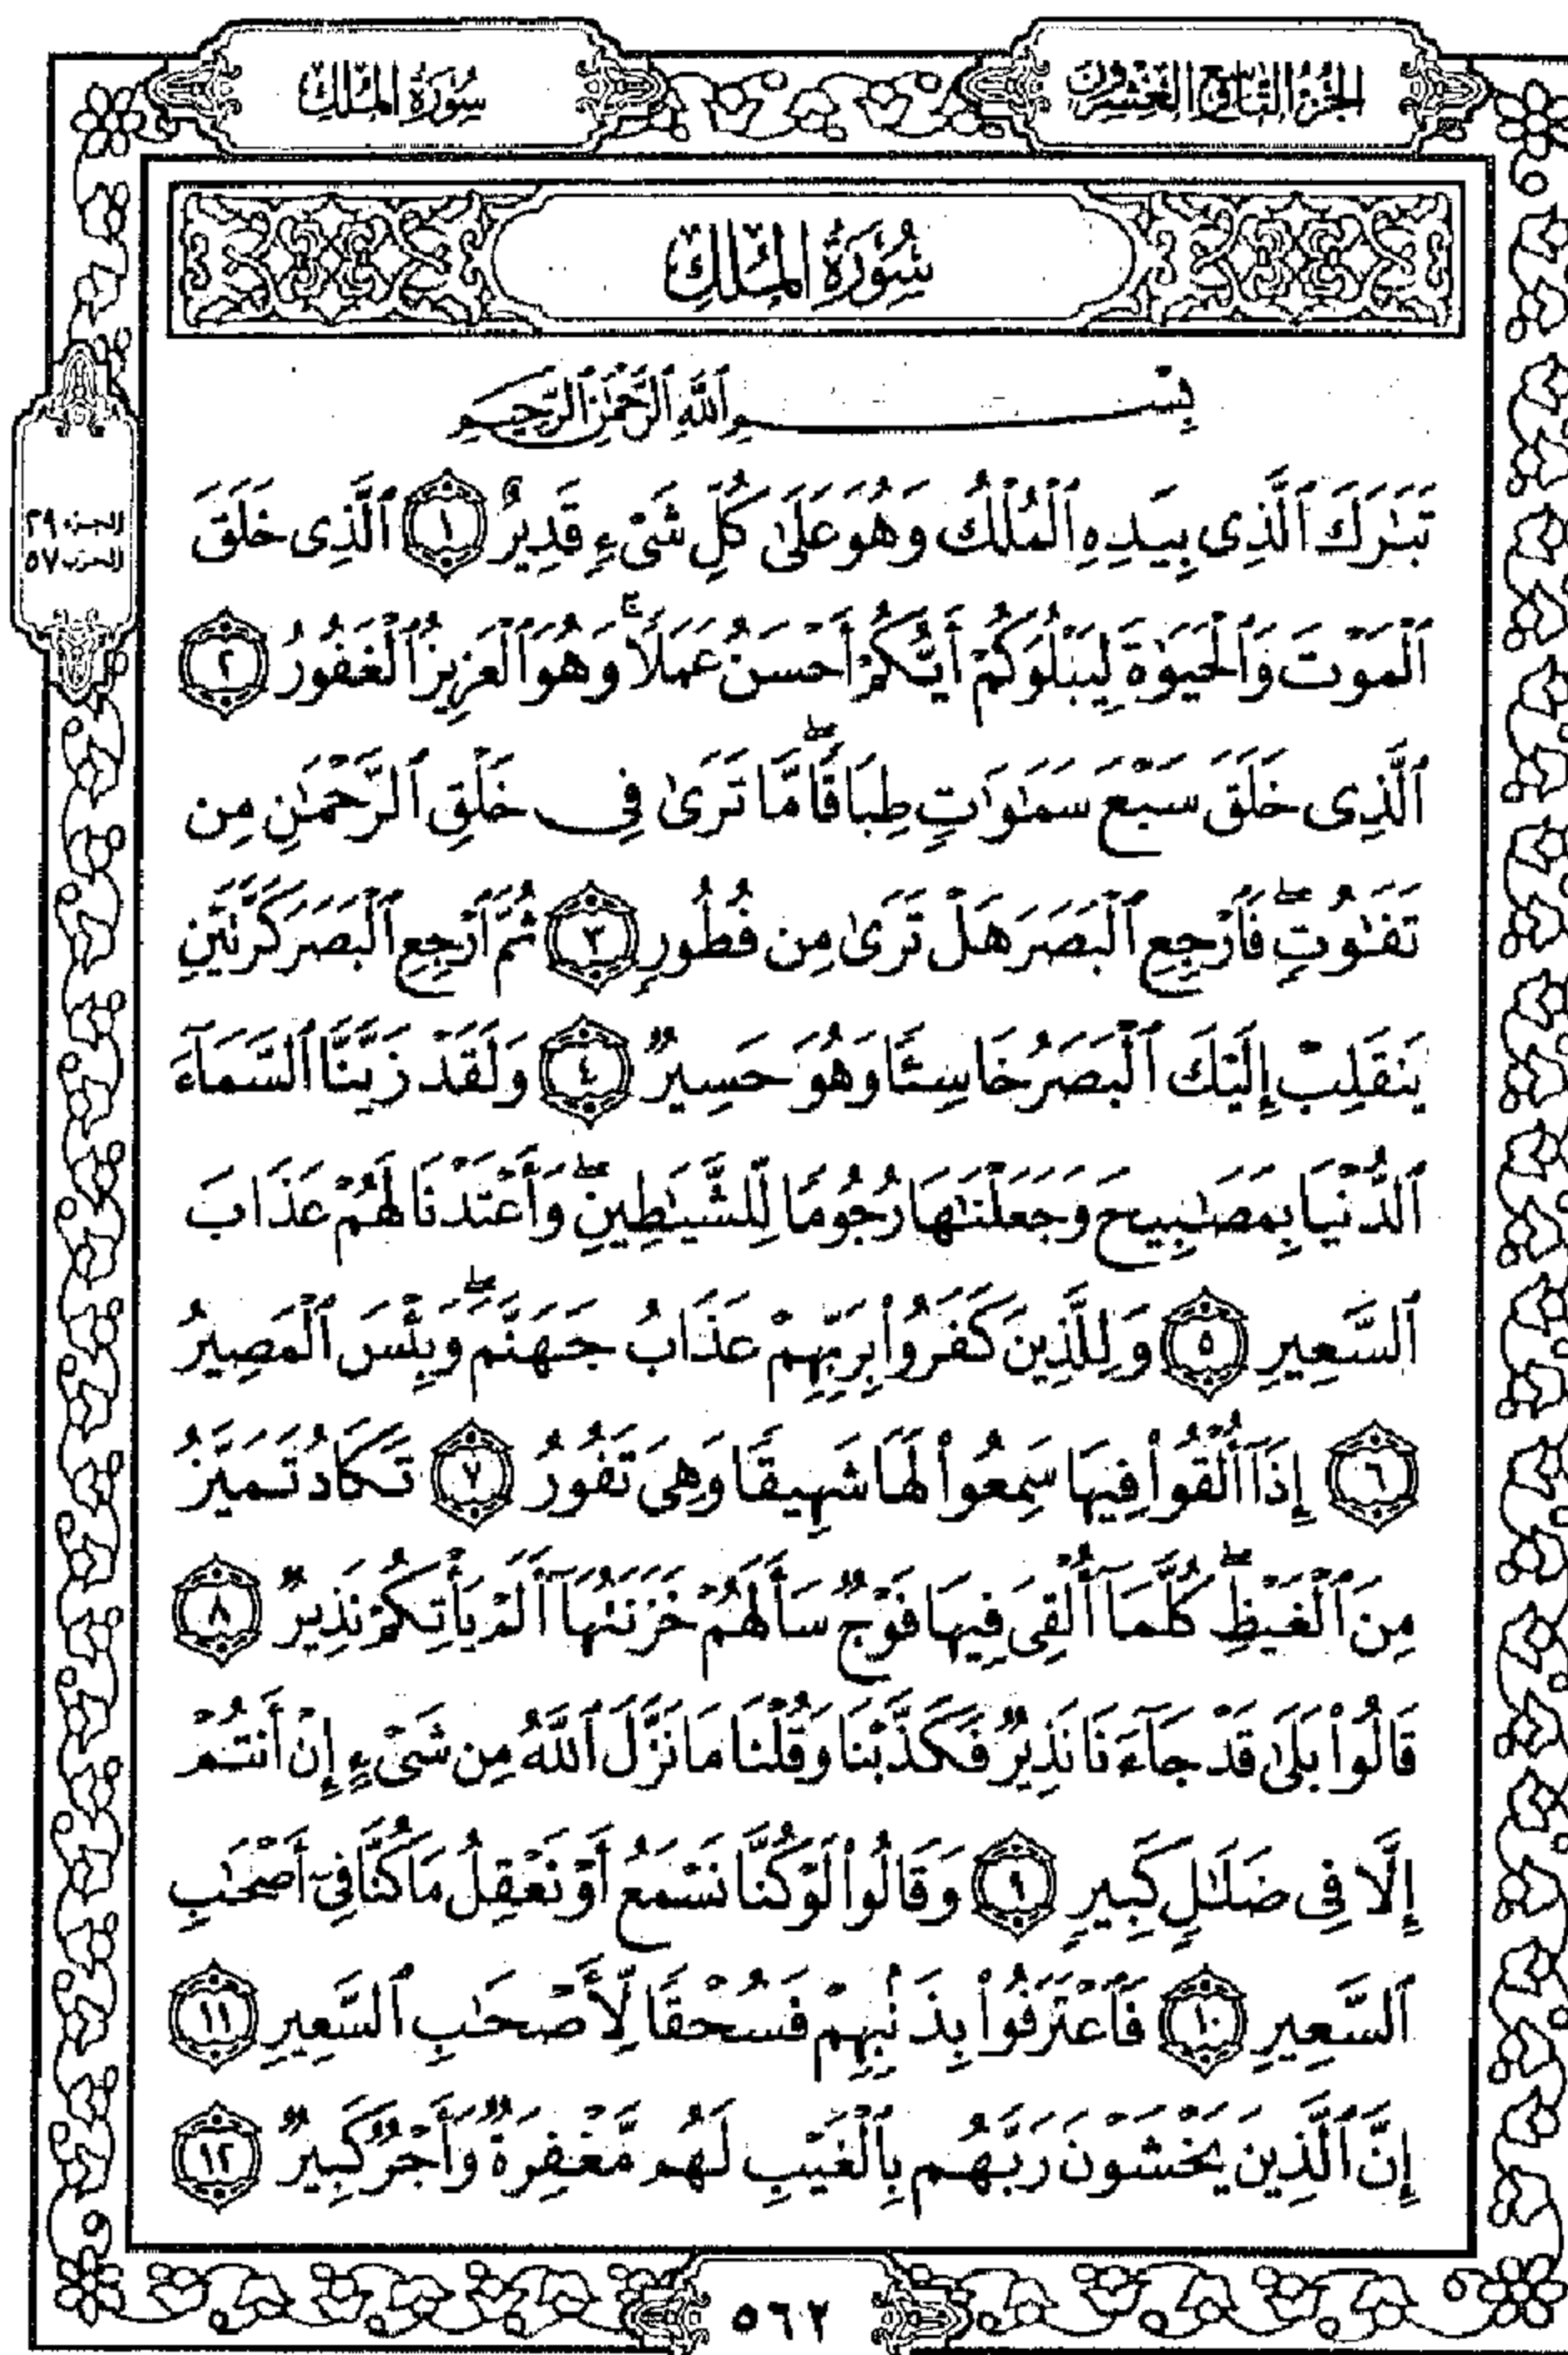 الجزء التاسع والعشرون
سورة الملك
سُورَةُ المُلْكِ
بِسْمِ ٱللَّهِ ٱلرَّحْمَٰنِ ٱلرَّحِيمِ
تَبَٰرَكَ ٱلَّذِى بِيَدِهِ ٱلْمُلْكُ وَهُوَ عَلَىٰ كُلِّ شَىْءٍ قَدِيرٌ ١ ٱلَّذِى خَلَقَ
ٱلْمَوْتَ وَٱلْحَيَوٰةَ لِيَبْلُوَكُمْ أَيُّكُمْ أَحْسَنُ عَمَلًاۚ وَهُوَ ٱلْعَزِيزُ ٱلْغَفُورُ ٢
ٱلَّذِى خَلَقَ سَبْعَ سَمَٰوَٰتٍ طِبَاقًاۖ مَّا تَرَىٰ فِى خَلْقِ ٱلرَّحْمَٰنِ مِن
تَفَٰوُتٍۖ فَٱرْجِعِ ٱلْبَصَرَ هَلْ تَرَىٰ مِن فُطُورٍ ٣ ثُمَّ ٱرْجِعِ ٱلْبَصَرَ كَرَّتَيْنِ
يَنقَلِبْ إِلَيْكَ ٱلْبَصَرُ خَاسِئًا وَهُوَ حَسِيرٌ ٤ وَلَقَدْ زَيَّنَّا ٱلسَّمَآءَ
ٱلدُّنْيَا بِمَصَٰبِيحَ وَجَعَلْنَٰهَا رُجُومًا لِّلشَّيَٰطِينِۖ وَأَعْتَدْنَا لَهُمْ عَذَابَ
ٱلسَّعِيرِ ٥ وَلِلَّذِينَ كَفَرُوا۟ بِرَبِّهِمْ عَذَابُ جَهَنَّمَۖ وَبِئْسَ ٱلْمَصِيرُ
٦ إِذَآ أُلْقُوا۟ فِيهَا سَمِعُوا۟ لَهَا شَهِيقًا وَهِىَ تَفُورُ ٧ تَكَادُ تَمَيَّزُ
مِنَ ٱلْغَيْظِۖ كُلَّمَآ أُلْقِىَ فِيهَا فَوْجٌ سَأَلَهُمْ خَزَنَتُهَآ أَلَمْ يَأْتِكُمْ نَذِيرٌ ٨
قَالُوا۟ بَلَىٰ قَدْ جَآءَنَا نَذِيرٌ فَكَذَّبْنَا وَقُلْنَا مَا نَزَّلَ ٱللَّهُ مِن شَىْءٍ إِنْ أَنتُمْ
إِلَّا فِى ضَلَٰلٍ كَبِيرٍ ٩ وَقَالُوا۟ لَوْ كُنَّا نَسْمَعُ أَوْ نَعْقِلُ مَا كُنَّا فِىٓ أَصْحَٰبِ
ٱلسَّعِيرِ ١٠ فَٱعْتَرَفُوا۟ بِذَنۢبِهِمْ فَسُحْقًا لِّأَصْحَٰبِ ٱلسَّعِيرِ ١١
إِنَّ ٱلَّذِينَ يَخْشَوْنَ رَبَّهُم بِٱلْغَيْبِ لَهُم مَّغْفِرَةٌ وَأَجْرٌ كَبِيرٌ ١٢
الجزء ٢٩
الحزب ٥٧
٥٦٢